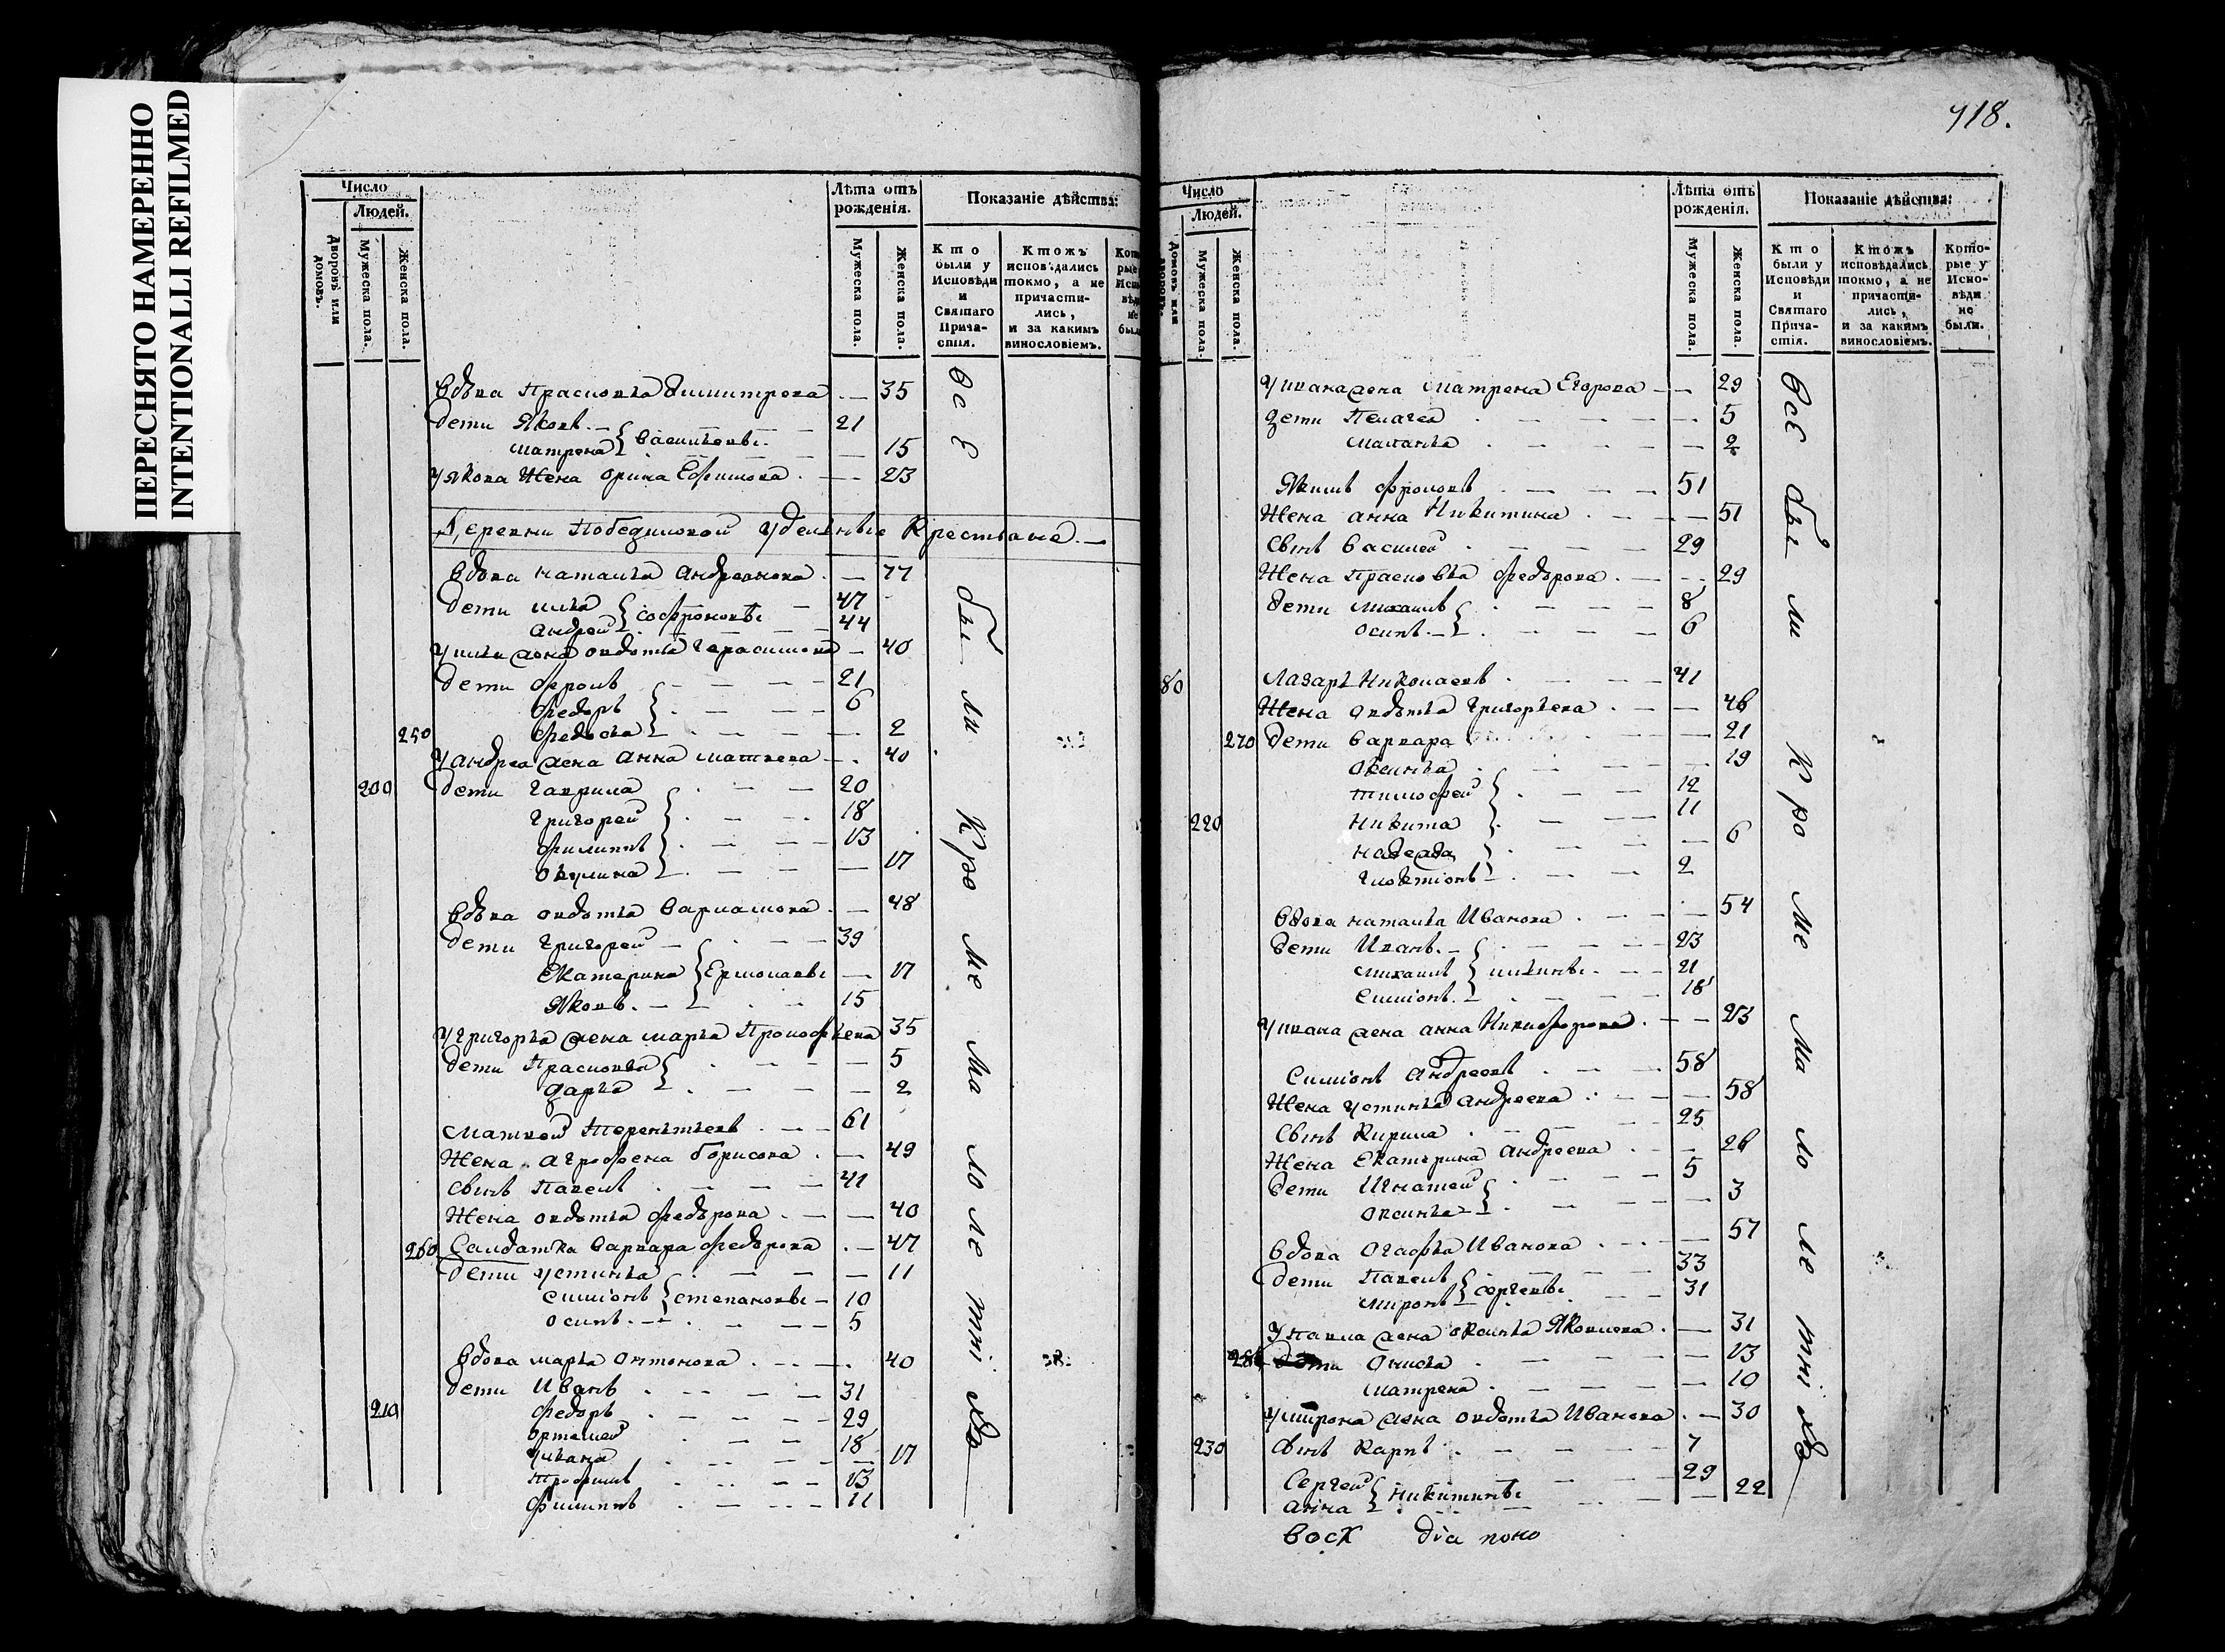 ПЕРЕСНЯТО НАМЕРЕННО
INTENTIONALLI REFILMED
Число
Людей.
Дворовъ или домовъ.
Мужеска пола.
Женска пола.
Лѣта отъ рожденія.
Мужеска пола.
Женска пола.
Показаніе дѣйства:
Кто были у Исповѣди и Святаго Прича-стія.
Ктожъ исповѣдались токмо, а не причасти-лись, и за какимъ винословіемъ.
вдова Прасковья Димитрева — 35
дети Яковъ 21
Матрена Васильевы 15
у Якова жена Орина Ефимова — 23
Деревни Победимовой Удельные Крестьяне
вдова наталья Андреянова — 77
дети илья 47
Андрей Софроновы 44
у ильи жена овдотья Герасимова — 40
дети фролъ 21
Федоръ 6
250 федосья 2
у андрея жена Анна матвева — 40
200 дети гаврила 20
Григорей 18
филиппъ 13
окулина — 17
вдова овдотья Варламова — 48
дети Григорей 39
Екатерина Ермолаевы — 17
Яковъ 15
у григорья жена марья Прокофьева 35
дети Прасковья — 5
дарья — 2
матвей Терентьевъ 61
Жена агрофена борисова — 49
сынъ Павелъ 41
Жена овдотья федорова — 40
260 Салдатка варвара федорова — 47
дети устинья — 11
симіонъ степановы 10
осипъ 5
вдова марья онтонова — 40
дети Иванъ 31
210 федоръ 29
ортемей 18
ульяна — 17
Трофимъ 13
филиппъ 11
все были кроме малолетніхъ
918.
Число
Людей.
Мужеска пола.
Женска пола.
Лѣта отъ рожденія.
Мужеска пола.
Женска пола.
Показаніе дѣйства:
Кто были у Исповѣди и Святаго Прича-стія.
Ктожъ исповѣдались токмо, а не причасти-лись, и за какимъ винословіемъ.
Кото-рые у Испо-вѣди не были.
у ивана жена матрена Егорова — 29
дети Пелагея — 5
маланья — 2
Якимъ фроловъ 51
Жена анна Никитина — 51
сынъ василей 29
Жена Прасковья федорова — 29
дети михаилъ 8
осипъ 6
80 Лазарь Николаевъ 41
Жена овдотья Григорьева — 46
270 дети варвара — 21
оксинья — 19
тимофей 12
220 Никита 11
надежда — 6
2
вдова наталья Иванова — 54
дети Иванъ 23
михаилъ ильины 21
симіонъ 18
у ивана жена анна Никифорова — 23
симіонъ андреевъ 58
Жена устинья андреева — 58
сынъ Кирила 25
Жена Екатерина андреева — 26
дети Игнатей 5
оксинья — 3
вдова Огафья Иванова — 57
дети Павелъ 33
миронъ сергеевы 31
у павла жена оксинья Яковлева — 31
280 дети Онисья — 13
матрена — 10
у мирона жена овдотья Иванова — 30
230 сынъ карпъ 7
Сергей 29
анна никитины — 22
все были кроме малолетніхъ